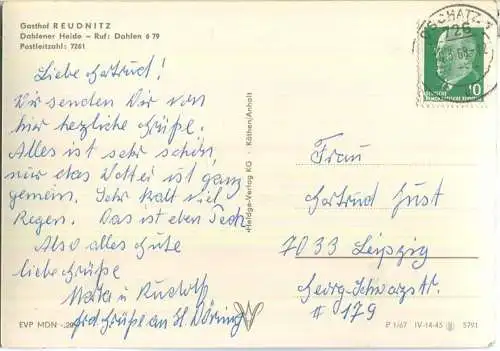 Gasthof REUDNITZ
Dahlener Heide – Ruf: Dahlen 6 79
Postleitzahl: 7261
OSCHATZ 1
726
Liebe Gertrud!
Wir senden Dir von
hier herzliche Grüße.
Alles ist sehr schön,
nur das Wetter ist ganz
gemein. Sehr kalt viel
Regen. Das ist eben Pech.
Also alles Gute
liebe Grüße
u. Rudolf
Grüße an H. Döring
Heldge-Verlag KG · Köthen/Anhalt
10
Frau
Gertrud Just
7033 Leipzig
Georg-Schwarzstr.
# 179
EVP MDN -,20
P 1/67 IV-14-45 5791